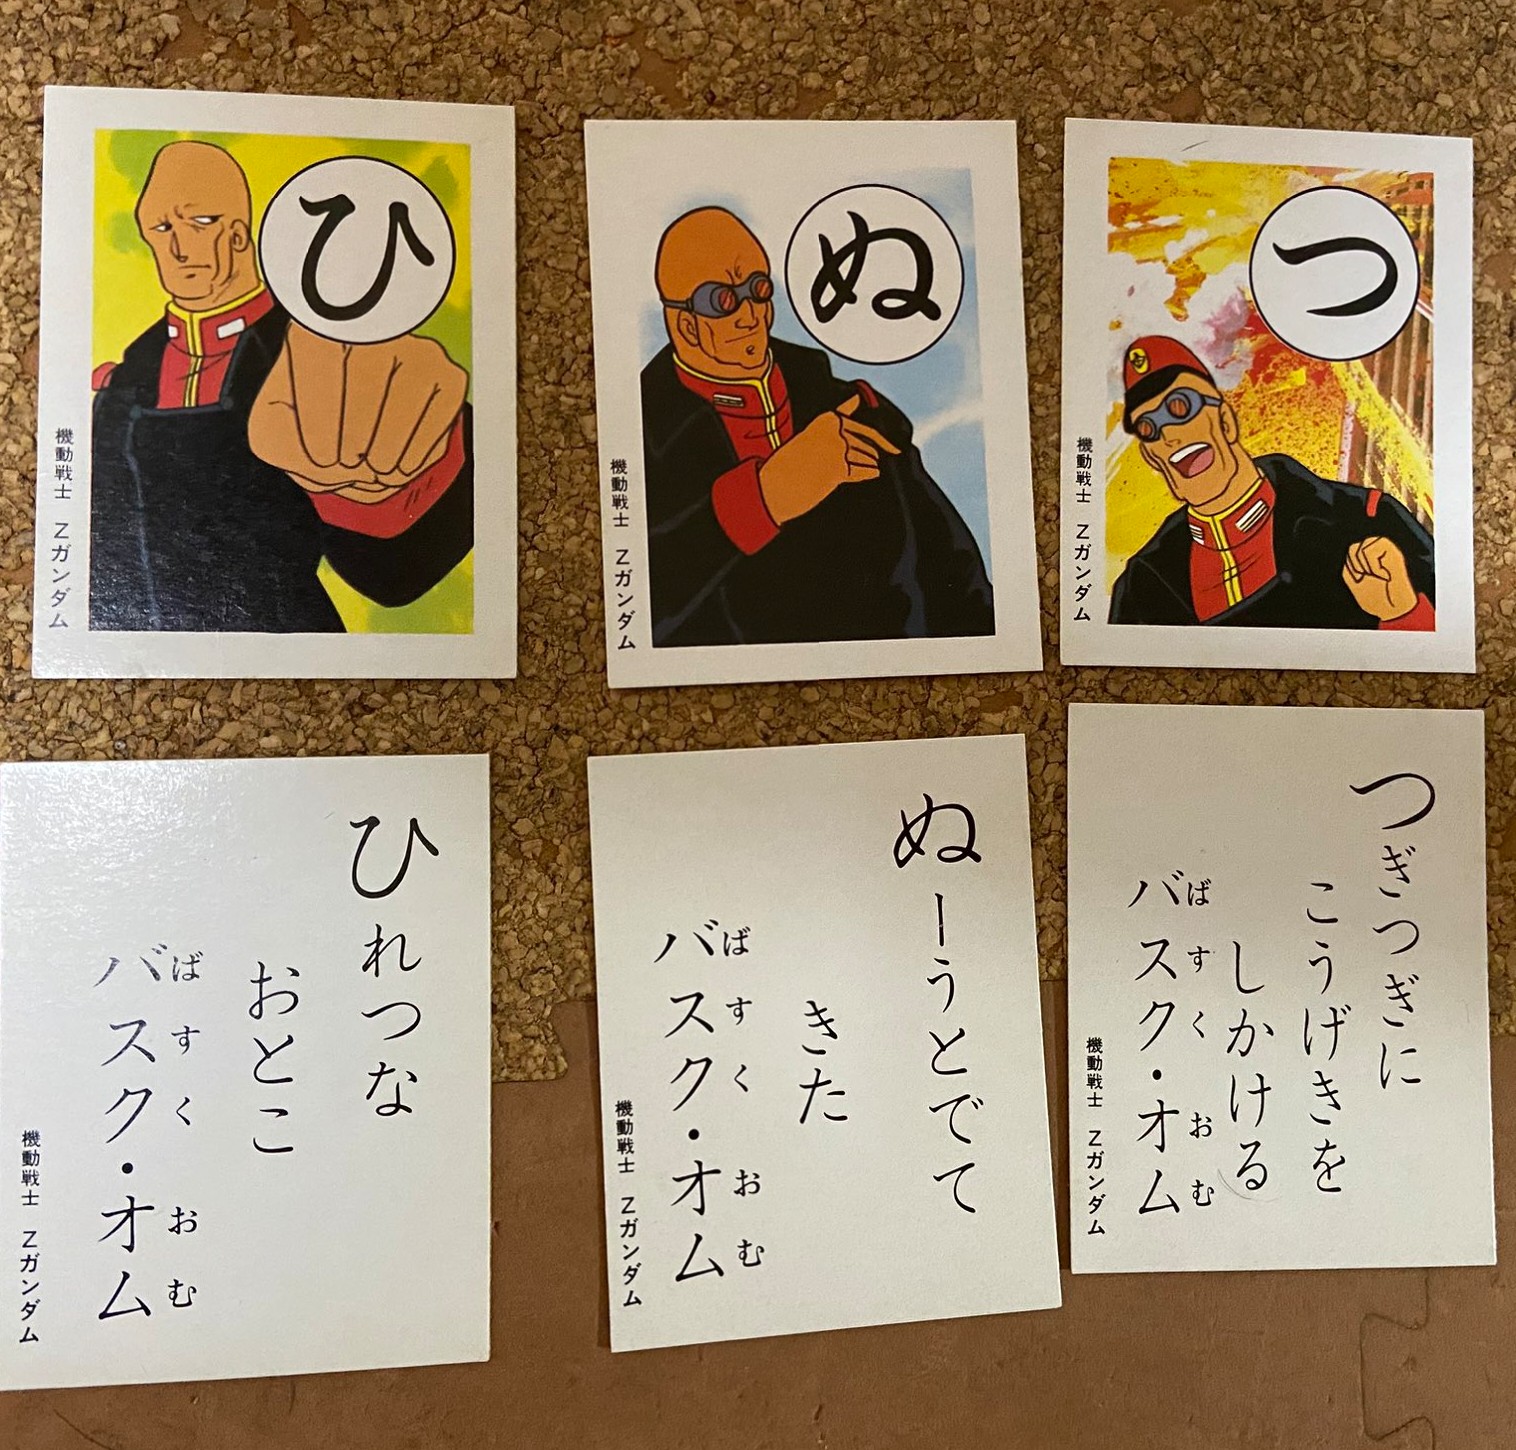 ひ
機動戦士 Zガンダム
ぬ
機動戦士 Zガンダム
つ
機動戦士 Zガンダム
ひれつな
おとこ
ばすく おむ
バスク・オム
機動戦士 Zガンダム
ぬーうとでて
きた
ばすく おむ
バスク・オム
機動戦士 Zガンダム
つぎつぎに
こうげきを
しかける
ばすく おむ
バスク・オム
機動戦士 Zガンダム